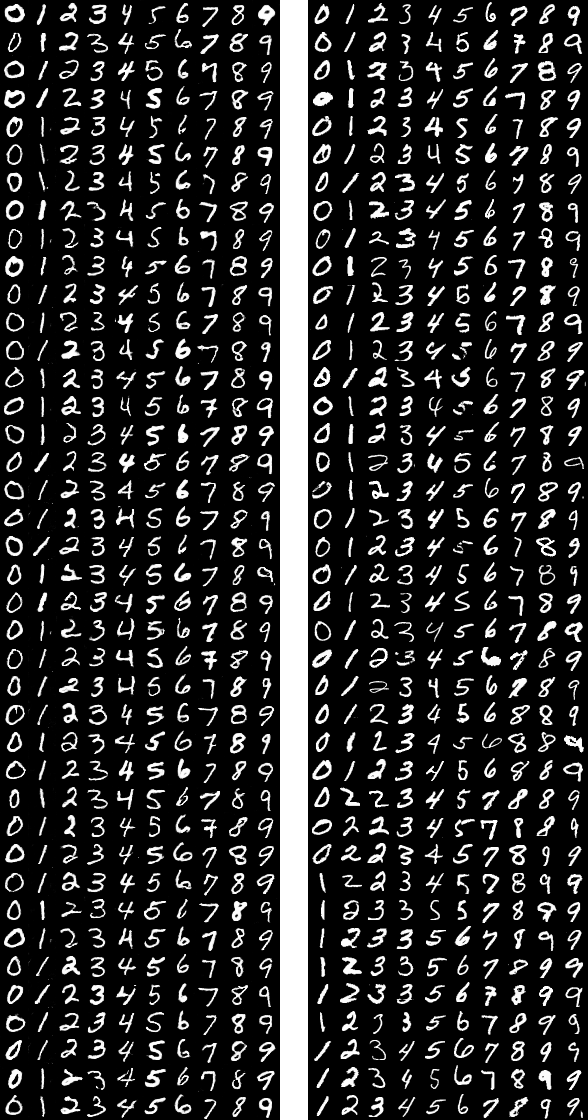 0 1 2 3 4 5 6 7 8 9
0 1 2 3 4 5 6 7 8 9
0 1 2 3 4 5 6 7 8 9
0 1 2 3 4 5 6 7 8 9
0 1 2 3 4 5 6 7 8 9
0 1 2 3 4 5 6 7 8 9
0 1 2 3 4 5 6 7 8 9
0 1 2 3 4 5 6 7 8 9
0 1 2 3 4 5 6 7 8 9
0 1 2 3 4 5 6 7 8 9
0 1 2 3 4 5 6 7 8 9
0 1 2 3 4 5 6 7 8 9
0 1 2 3 4 5 6 7 8 9
0 1 2 3 4 5 6 7 8 9
0 1 2 3 4 5 6 7 8 9
0 1 2 3 4 5 6 7 8 9
0 1 2 3 4 5 6 7 8 9
0 1 2 3 4 5 6 7 8 9
0 1 2 3 4 5 6 7 8 9
0 1 2 3 4 5 6 7 8 9
0 1 2 3 4 5 6 7 8 9
0 1 2 3 4 5 6 7 8 9
0 1 2 3 4 5 6 7 8 9
0 1 2 3 4 5 6 7 8 9
0 1 2 3 4 5 6 7 8 9
0 1 2 3 4 5 6 7 8 9
0 1 2 3 4 5 6 7 8 9
0 1 2 3 4 5 6 7 8 9
0 1 2 3 4 5 6 7 8 9
0 1 2 3 4 5 6 7 8 9
0 1 2 3 4 5 6 7 8 9
0 1 2 3 4 5 6 7 8 9
0 1 2 3 4 5 6 7 8 9
0 1 2 3 4 5 6 7 8 9
0 1 2 3 4 5 6 7 8 9
0 1 2 3 4 5 6 7 8 9
0 1 2 3 4 5 6 7 8 9
0 1 2 3 4 5 6 7 8 9
0 1 2 3 4 5 6 7 8 9
0 1 2 3 4 5 6 7 8 9
0 1 2 3 4 5 6 7 8 9
0 1 2 3 4 5 6 7 8 9
0 1 2 3 4 5 6 7 8 9
0 1 2 3 4 5 6 7 8 9
0 1 2 3 4 5 6 7 8 9
0 1 2 3 4 5 6 7 8 9
0 1 2 3 4 5 6 7 8 9
0 1 2 3 4 5 6 7 8 9
0 1 2 3 4 5 6 7 8 9
0 1 2 3 4 5 6 7 8 9
0 1 2 3 4 5 6 7 8 9
0 1 2 3 4 5 6 7 8 9
0 1 2 3 4 5 6 7 8 9
0 1 2 3 4 5 6 7 8 9
0 1 2 3 4 5 6 7 8 9
0 1 2 3 4 5 6 7 8 9
0 1 2 3 4 5 6 7 8 9
0 1 2 3 4 5 6 7 8 9
0 1 2 3 4 5 6 7 8 9
0 1 2 3 4 5 6 7 8 9
0 1 2 3 4 5 6 7 8 9
0 1 2 3 4 5 6 7 8 9
0 1 2 3 4 5 6 7 8 9
0 1 2 3 4 5 6 7 8 9
0 1 2 3 4 5 6 7 8 9
0 1 2 3 4 5 6 8 8 9
0 1 2 3 4 5 6 8 8 9
0 1 2 3 4 5 6 8 8 9
0 2 2 3 4 5 7 8 8 9
0 2 2 3 4 5 7 8 8 9
0 2 2 3 4 5 7 8 9 9
1 2 2 3 4 5 7 8 9 9
1 2 3 3 5 5 7 8 9 9
1 2 3 3 5 6 7 8 9 9
1 2 3 3 5 6 7 8 9 9
1 2 3 3 5 6 7 8 9 9
1 2 3 3 5 6 7 8 9 9
1 2 3 4 5 6 7 8 9 9
1 2 3 4 5 6 7 8 9 9
1 2 3 4 5 6 7 8 9 9